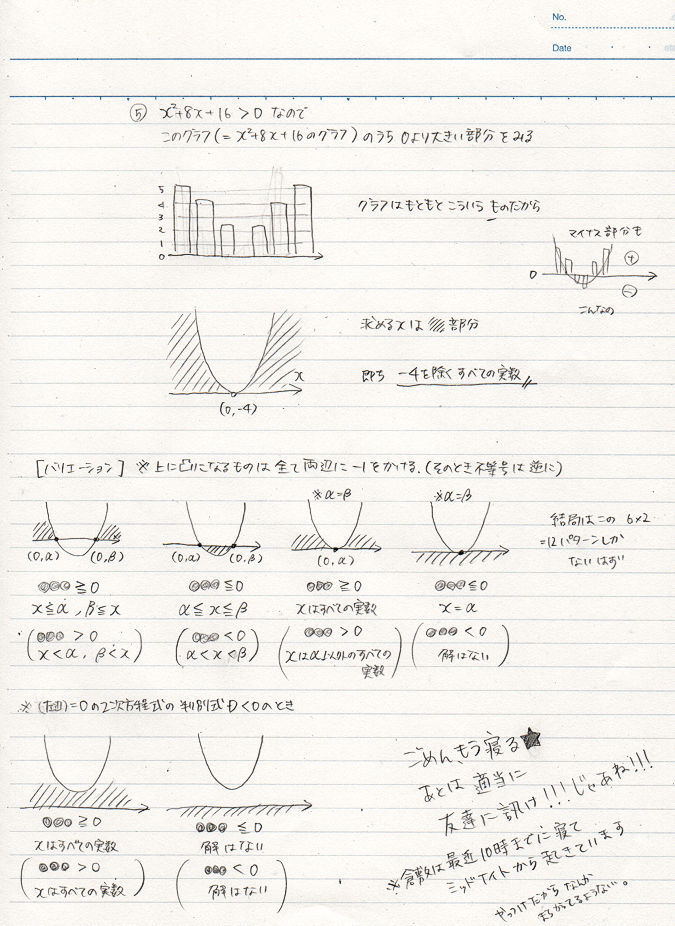 No.
Date
⑤ x²+8x+16 > 0 なので
このグラフ(= x²+8x+16のグラフ) のうち 0より大きい部分をみる
5
4
3
2
1
0
グラフはもともと こういう ものだから
マイナス部分も
0
＋
－
こんなの
求めるxは 部分
x
(0,-4)
即ち -4を除くすべての実数
[バリエーション] ※上に凸になるものは全て両辺に-1をかける.(そのとき不等号は逆に)
(0,α) (0,β)
(0,α) (0,β)
※α=β
(0,α)
※α=β
結局はこの 6×2
=12パターンしか
ないはず
●●● ≧ 0
x≦α , β≦x
( ●●● > 0
x<α , β<x )
●●● ≦ 0
α≦x≦β
( ●●● < 0
α<x<β )
●●● ≧ 0
xはすべての実数
( ●●● > 0
xはα以外のすべての
実数 )
●●● ≦ 0
x=α
( ●●● < 0
解はない )
※ (左辺)=0の2次方程式の判別式D<0のとき
●●● ≧ 0
xはすべての実数
( ●●● > 0
xはすべての実数 )
●●● ≦ 0
解はない
( ●●● < 0
解はない )
ごめんもう寝る★
あとは適当に
友達に訊け!!!じゃあね!!!
※倉敷は最近10時までに寝て
ミッドナイトから起きています
やっつけだからなんか
まちがってるようない。